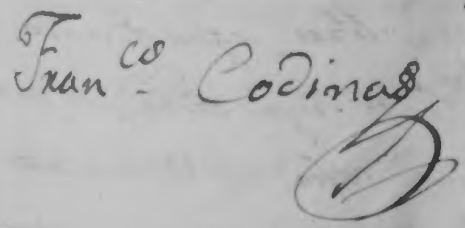 Fran.cs Codinas